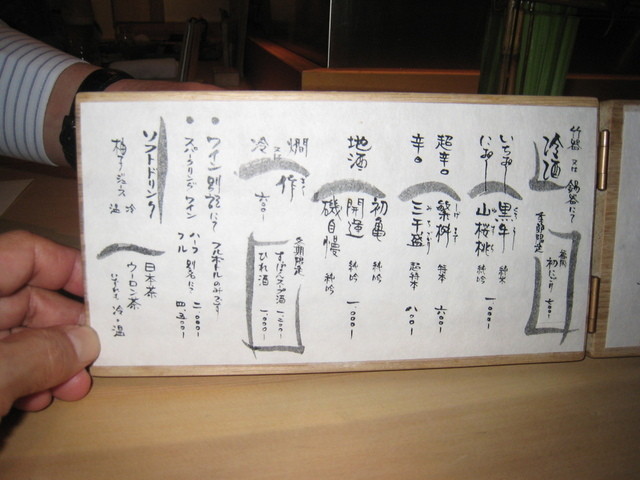 竹器 又は 錫器にて
冷酒
季節限定
初にごり 七〇〇一
いちおし 黒牛 純米
にごり 山桜桃 純吟 一〇〇〇一
超辛口 築桝 特本 六〇〇一
辛口 三千盛 超特本 八〇〇一
地酒
初亀 純吟
開運 純吟 一〇〇〇一
磯自慢 純吟
燗 又は 冷 作 六〇〇一
冬期限定
すっぽん酒 一二〇〇一
ひれ酒 一〇〇〇一
ワイン 別紙にて フルボトルのみです
スパークリングワイン ハーフ 二〇〇〇一
フル 別紙にて 四、五〇〇一
ソフトドリンク
梅ジュース 冷 温
日本茶
ウーロン茶
いずれも 冷・温